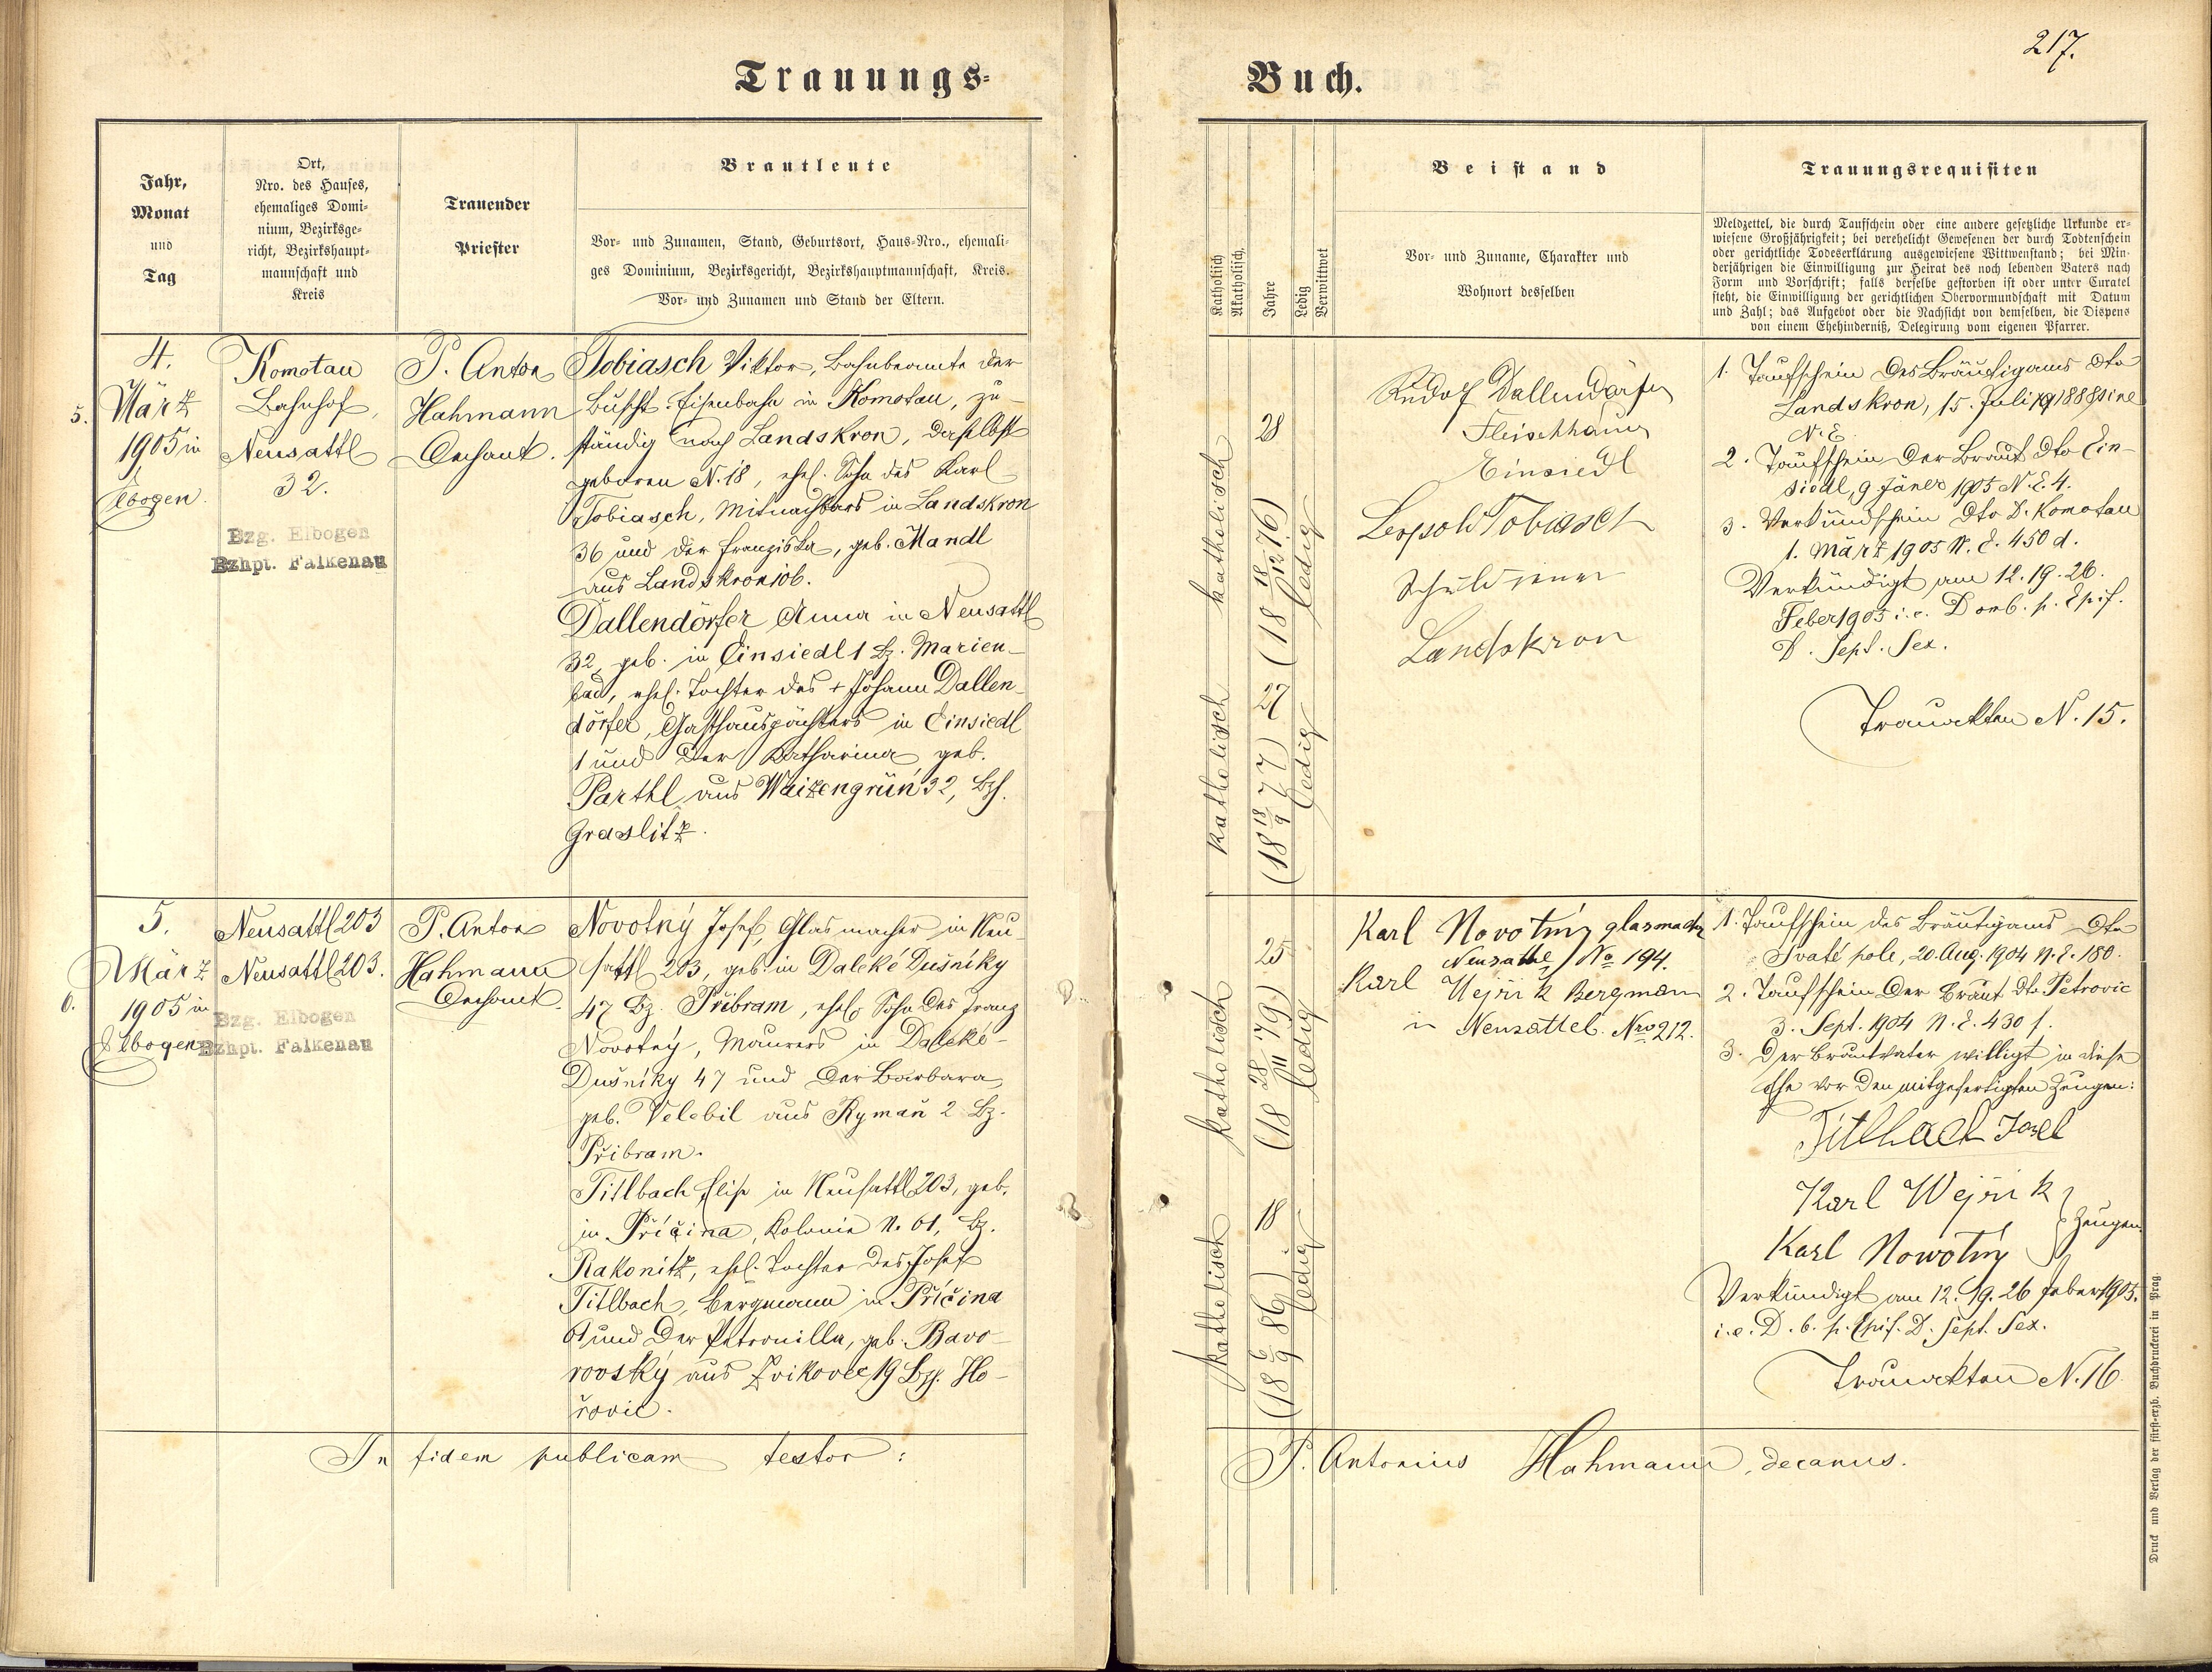 217.
Trauungs-
Buch.
Jahr,
Monat
und
Tag
Ort,
Nro. des Hauses,
ehemaliges Domi-
nium, Bezirksge-
richt, Bezirkshaupt-
mannschaft und
Kreis
Trauender
Priester
Brautleute
Vor- und Zunamen, Stand, Geburtsort, Haus-Nro., ehemali-
ges Dominium, Bezirksgericht, Bezirkshauptmannschaft, Kreis.
Vor- und Zunamen und Stand der Eltern.
Katholisch
Akatholisch,
Jahre
Ledig
Verwittwet
Beistand
Vor- und Zuname, Charakter und
Wohnort desselben
Trauungsrequisiten
Meldzettel, die durch Taufschein oder eine andere gesetzliche Urkunde er-
wiesene Großjährigkeit; bei verehelicht Gewesenen der durch Todtenschein
oder gerichtliche Todeserklärung ausgewiesene Wittwenstand; bei Min-
derjährigen die Einwilligung zur Heirat des noch lebenden Vaters nach
Form und Vorschrift; falls derselbe gestorben ist oder unter Curatel
steht, die Einwilligung der gerichtlichen Obervormundschaft mit Datum
und Zahl; das Aufgebot oder die Nachsicht von demselben, die Dispens
von einem Ehehinderniß, Delegirung vom eigenen Pfarrer.
5.
4.
März
1905 in
Elbogen
Komotau
Bahnhof,
Neusattl
32.
Bzg. Elbogen
Bzhpt. Falkenau
P. Anton
Hahmann
Dechant.
Tobiasch Viktor, Bahnbeamte der
Buscht. Eisenbahn in Komotau, zu-
ständig nach Landskron, daselbst
geboren N. 18, ehel. Sohn des Karl
Tobiasch, Mitnachbars in Landskron
36 und der Franziska, geb. Mandl
aus Landskron
Dallendörfer Anna in Neusattl
32, geb. in Einsiedl 1 Bz. Marien-
bad, ehel. Tochter des + Johann Dallen-
dörfer, Gasthauspächters in Einsiedl
1 und der Katharina geb.
Parthl aus Waizengrün 32, Bzh.
Graslitz.
katholisch
28
(18 18/12 76)
ledig
katholisch
27
(18 18/9 77)
ledig
Rudolf Dallendörfer
Fleischhauer
Einsiedl
Leopold Tobiasch
Landskron
1. Taufschein des Bräutigams dto
Landskron, 15. Juli 1888 sine
N. E.
2. Taufschein der Braut dto Ein-
siedl, 9 Jäner 1905 N. E. 4.
3. Verkündschein dto D. Komotau
1. März 1905 N. E. 450 d.
Verkündigt am 12. 19. 26.
Feber 1905 i. e. Dom 6. p. Epif.
D. Sept. Sex.
Trauakten N. 15.
6.
5.
März
1905 in
Elbogen
Neusattl 203
Neusattl 203.
Bzg. Elbogen
Bzhpt. Falkenau
P. Anton
Hahmann
Dechant.
Novotný Josef, Glasmacher in Neu-
sattl 203, geb. in Daleké Dušníky
47 Bz. Přibram, ehel. Sohn des Franz
Novotný, Maurers in Daleké-
Dušníky 47 und der Barbara,
geb. Velebil aus Rymaň 2 Bz.
Přibram.
Titlbach Elise in Neusattl 203, geb.
in Příčina, Kolonie N. 61, Bz.
Rakonitz, ehel. Tochter des Josef
Titlbach, Bergmann in Příčina
61 und der Petronilla, geb. Bavo-
rovský aus Zvikovec 19 Bzh. Ho-
řovic.
katholisch
25
(18 28/III 79)
ledig
katholisch
18
(18 6/9 86)
ledig
Karl Novotny glasmacher
Neusattl No 194.
Karl Wejřik Bergman
in Neusattel. Nro 212.
1. Taufschein des Bräutigams dto
Svaté pole, 20. Aug. 1904 N. E. 180.
2. Taufschein der Braut dto Petrovic
3. Sept. 1904 N. E. 430 f.
3. Der Brautvater willigt in diese
Ehe vor den mitgefertigten Zeugen:
Titlbach Josef
Karl Wejřik
Karl Nowotny
Zeugen
Verkündigt am 12. 19. 26 Feber 1905.
i. e. D. 6. p. Epif. D. Sept. Sex.
Trauakten N. 16.
In fidem publicam testor:
P. Antonius Hahmann, decanus.
Druck und Verlag der fürst-erzb. Buchdruckerei in Prag.